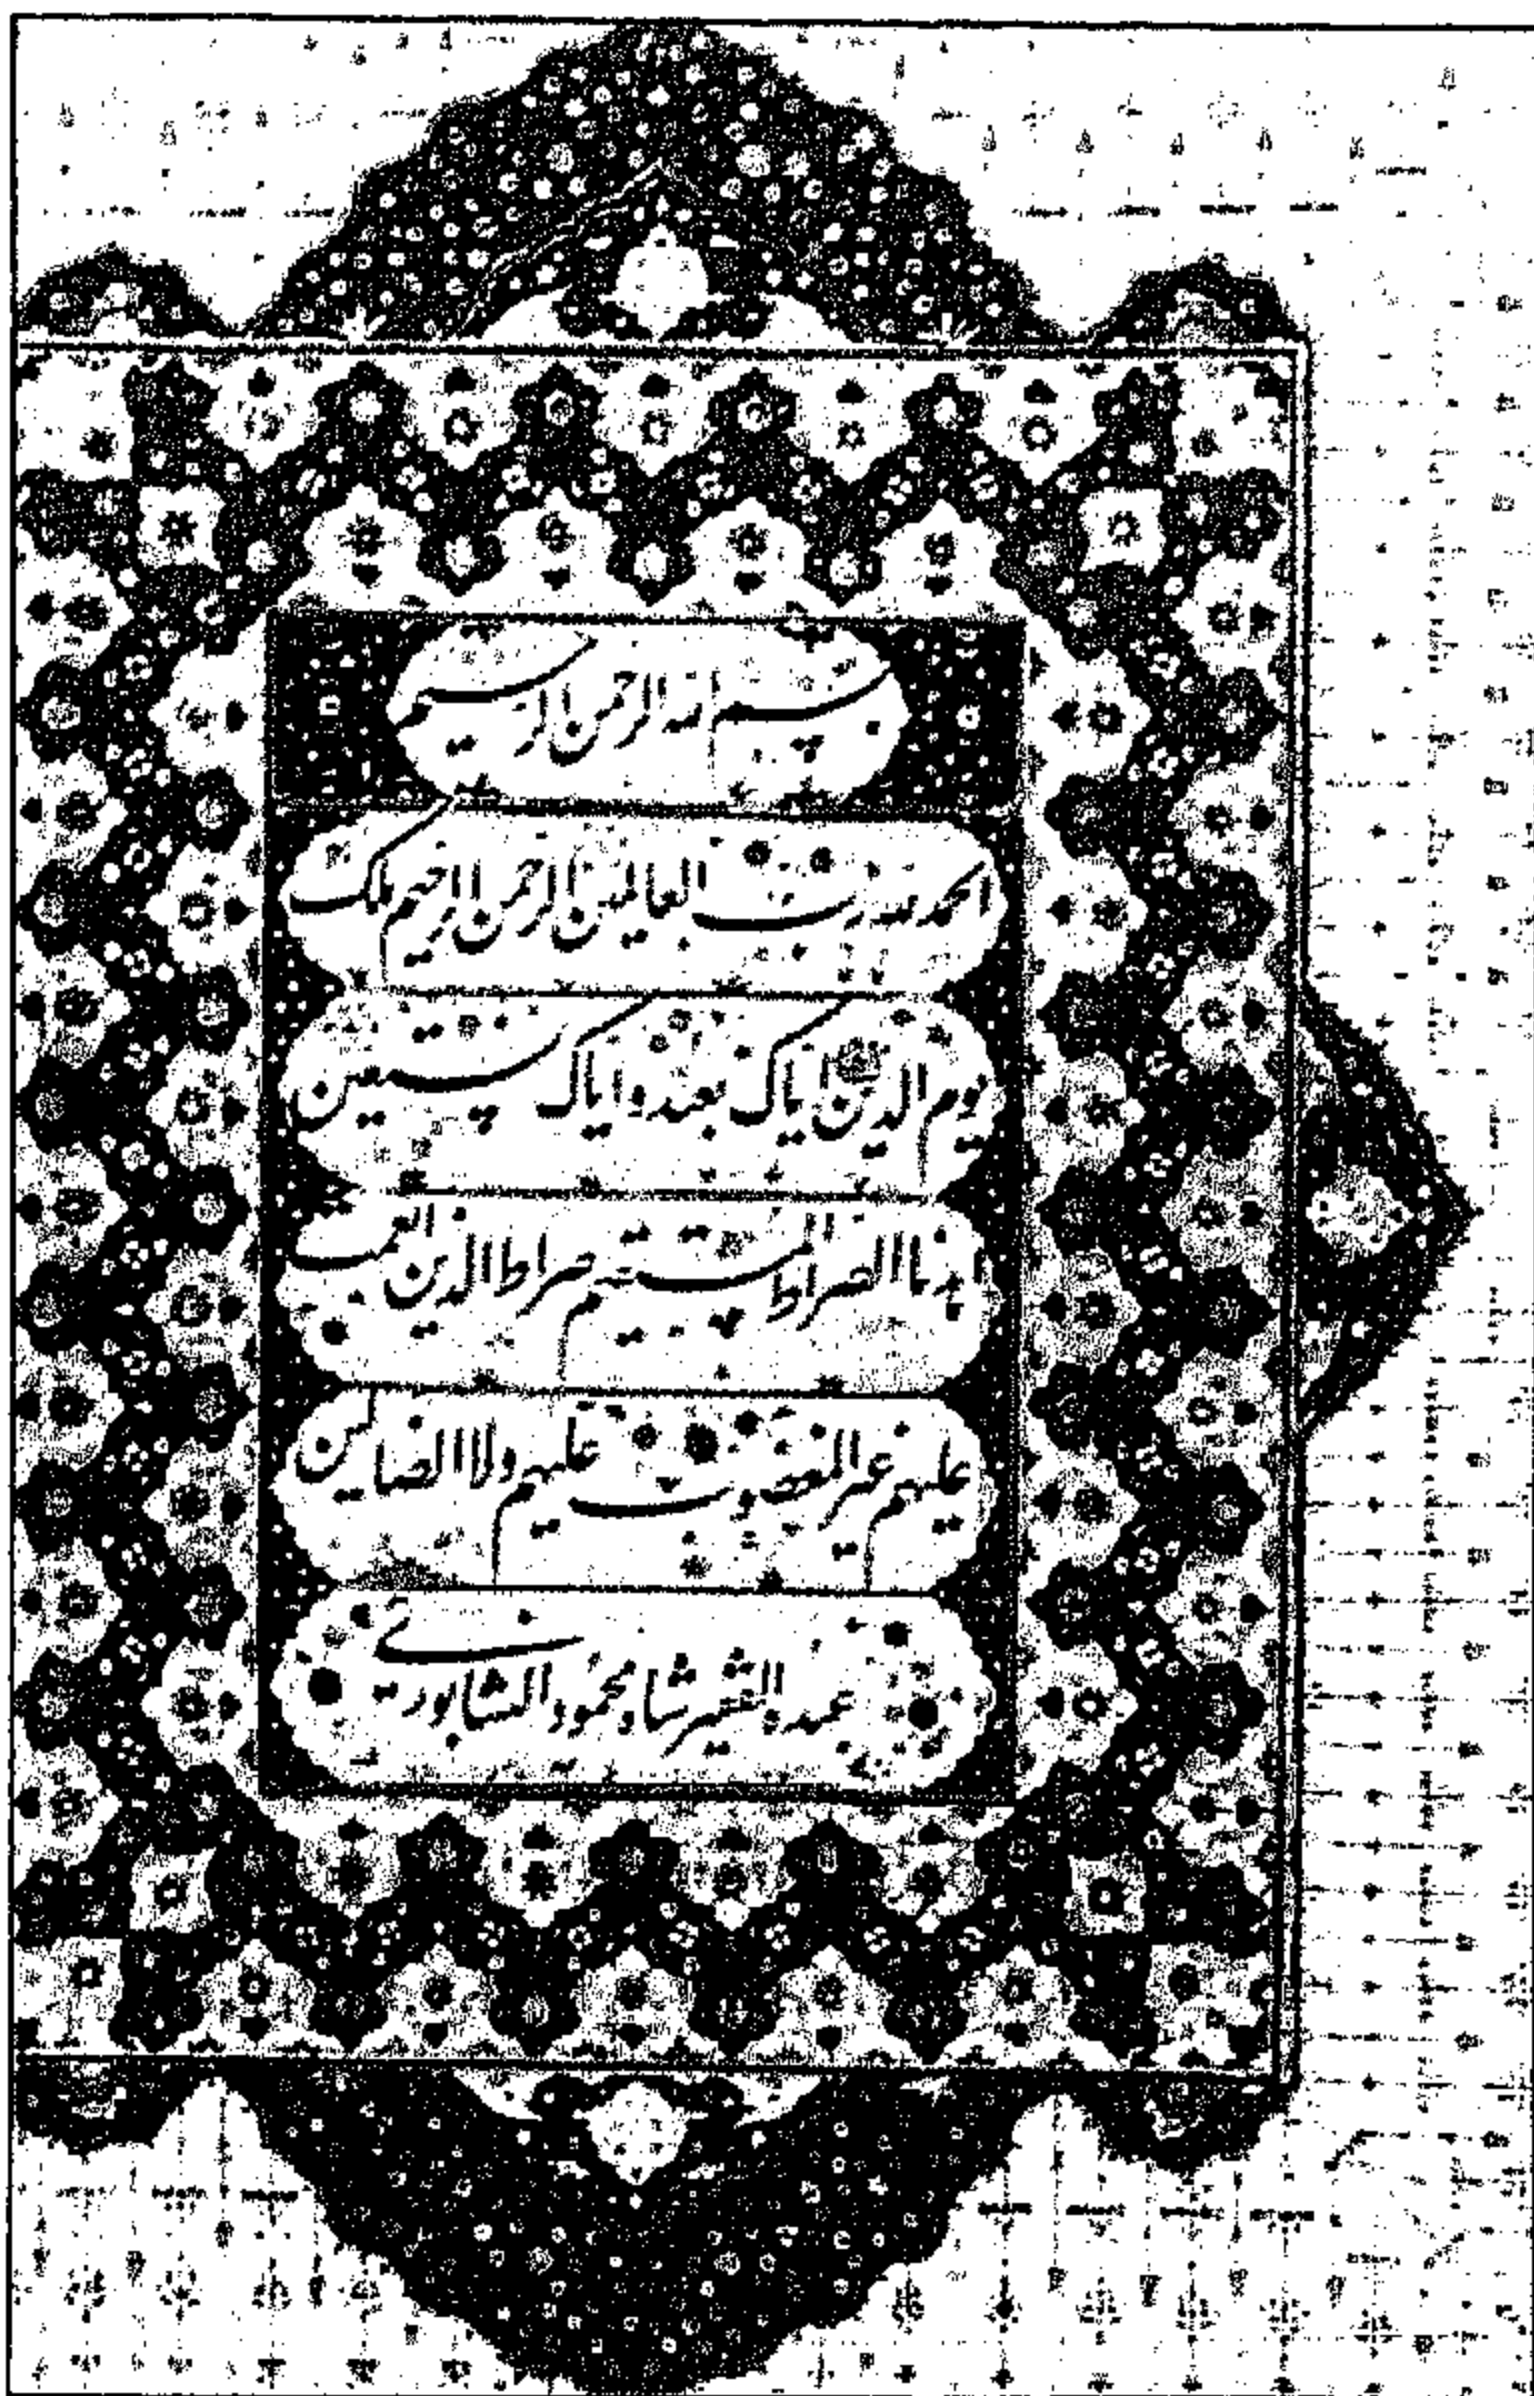 بسم الله الرحمن الرحيم
الحمد لله رب العالمين الرحمن الرحيم ملک
يوم الدين اياک نعبد و اياک نستعين
اهدنا الصراط المستقيم صراط الذين انعمت
عليهم غير المغضوب عليهم ولا الضالين
شاه محمود النيشابوری